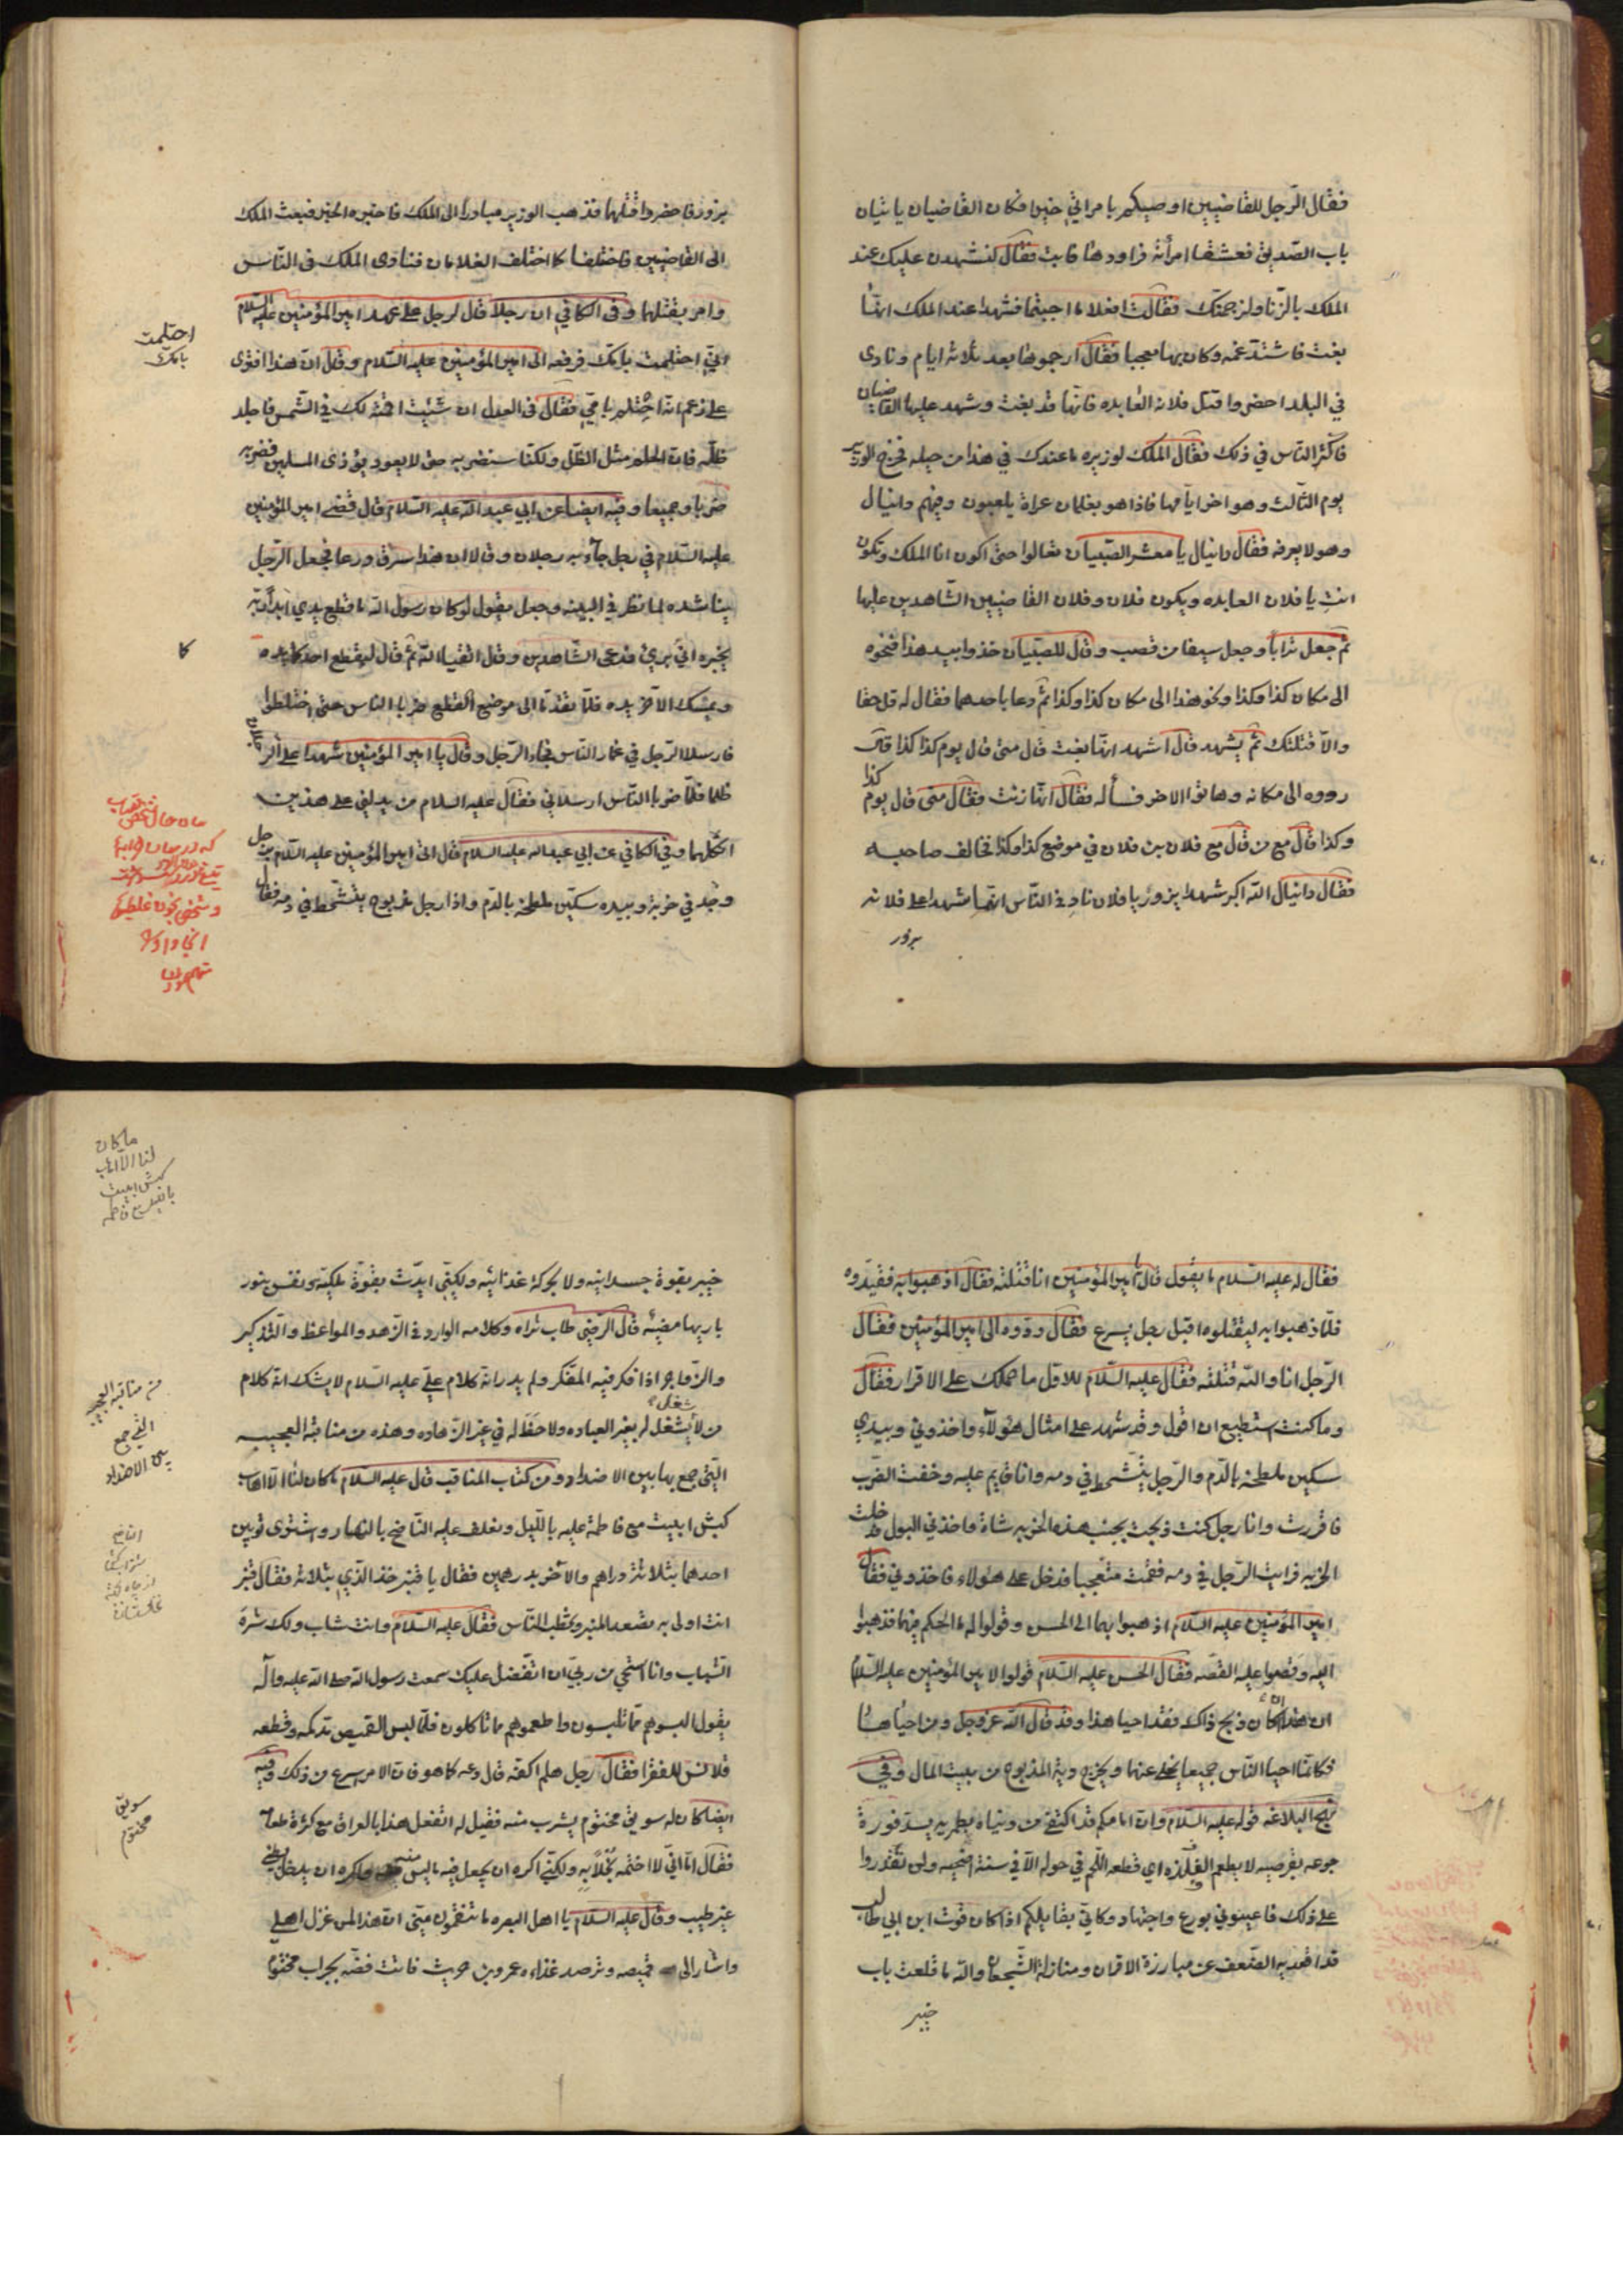 فقال الرجل للقاضيين اوصيكم بامراتي خيرا فكان القاضيان ياتيان
باب الصديق فعشقا امرأته فراودها فابت فقال لنشهدن عليك عند
الملك بالزنا ولنرجمنك فقالت افعلا ما احببتما فشهدا عند الملك انها
بغت فاشتد غمه وكان بها معجبا فقال ارجموها بعد ثلاثة ايام ونادى
في البلد احضروا قتل فلانه العابده فانها قد بغت وشهد عليها القاضيان
فاكثر الناس في ذلك فقال الملك لوزيره ما عندك في هذا من حيله فخرج الوزير
يوم الثالث وهو اخر ايامها فاذا هو بغلمان عراة يلعبون وفيهم دانيال
وهو لا يعرفه فقال دانيال يا معشر الصبيان تعالوا حتى اكون انا الملك وتكون
انت يا فلان العابده ويكون فلان وفلان القاضيين الشاهدين عليها
ثم جعل ترابا وجعل سيفا من قصب وقال للصبيان خذوا بيد هذا فنحوه
الى مكان كذا وكذا ونحو هذا الى مكان كذا وكذا ثم دعا باحدهما فقال له قل حقا
والا قتلتك ثم يشهد قال اشهد انها بغت قال متى قال يوم كذا كذا قال
ردوه الى مكانه وهاتوا الاخر فسأله فقال انها زنت فقال متى قال يوم كذا
وكذا قال مع من قال مع فلان بن فلان في موضع كذا وكذا تخالف صاحبه
فقال دانيال الله اكبر شهدا بزور يا فلان ناد في الناس انهما شهدا على فلانه
بزور
بزور فاحضروا قتلهما فذهب الوزير مبادرا الى الملك فاخبره الخبر فبعث الملك
الى القاضيين فاختلفا كما اختلف الغلامان فنادى الملك في الناس
وامر بقتلهما وفي الكافي ان رجلا قال لرجل على عهد امير المؤمنين عليه السلام
اني احتلمت بامك فرفعه الى امير المؤمنين عليه السلام وقال ان هذا افترى
على زعم انه احتلم بامي فقال في العدل ان شئت اقمته لك في الشمس فاجلد
ظله فان الحلم مثل الظل ولكنا سنضربه حتى لا يعود يؤذي المسلمين فضربه
ضربا وجيعا وفيه ايضا عن ابي عبد الله عليه السلام قال قضى امير المؤمنين
عليه السلام في رجل جاء به رجلان وقالا ان هذا سرق درعا فجعل الرجل
يناشده لما نظر في البينه وجعل يقول لو كان رسول الله ما قطع يدي ابدا ربه
يخبره اني بريء فدعى الشاهدين وقال اتقيا الله ثم قال ليقطع احدكما يده
ويمسك الاخر يده فلما تقدما الى موضع القطع ضربا الناس حتى اختلطوا
فارسلا الرجل في غمار الناس فجاء الرجل وقال يا امير المؤمنين شهدا على الرجلان
ظلما فلما ضربا الناس ارسلاني فقال عليه السلام من يدلني على هذين
انكلهما وفي الكافي عن ابي عبد الله عليه السلام قال اتى امير المؤمنين عليه السلام برجل
وجد في خربة وبيده سكين ملطخه بالدم واذا رجل مذبوح يتشحط في دمه فقال
احتلمت
بامك
كا
فقال له عليه السلام ما يقول قال يا امير المؤمنين انا قتلته فقال اذهبوا به فقيدوه
فلما ذهبوا به ليقتلوه اقبل رجل يسرع فقال ردوه الى امير المؤمنين فقال
الرجل انا والله قتلته فقال عليه السلام للاول ما حملك على الاقرار فقال
وما كنت استطيع ان اقول وقد شهد على امثال هؤلاء واخذوني وبيدي
سكين ملطخه بالدم والرجل يتشحط في دمه وانا قايم عليه وخفت الضرب
فاقررت وانا رجل كنت ذبحت بجنب هذه الخربه شاة واخذني البول فدخلت
الخربه فرايت الرجل في دمه فقمت متعجبا فدخل على هؤلاء فاخذوني فقال
امير المؤمنين عليه السلام اذهبوا بهما الى الحسن وقولوا له ما الحكم فيهما فذهبوا
اليه وقصوا عليه القصه فقال الحسن عليه السلام قولوا لامير المؤمنين عليه السلام
ان هذا ان كان ذبح ذاك فقد احيا هذا وقد قال الله عز وجل ومن احياها
فكانما احيا الناس جميعا يخلى عنهما ويخرج دية المذبوح من بيت المال وفي
نهج البلاغه قوله عليه السلام وان امامكم قد اكتفى من دنياه بطمريه يسد فورة
جوعه بقرصيه لا يطعم الفلذه اي قطعه اللحم في حوله الا في سنة اضحيه ولن تقدروا
على ذلك فاعينوني بورع واجتهاد وكاني بقايلكم اذا كان قوت ابن ابي طالب
قد اقعد به الضعف عن مبارزة الاقران ومنازلة الشجعان والله ما قلعت باب
خيبر
خيبر بقوة جسدانيه ولا بحركة غذائيه ولكني ايدت بقوة ملكيه ونفس بنور
باريها مضيئه قال الرضي طاب ثراه وكلامه الوارد في الزهد والمواعظ والتذكير
والزواجر اذا فكر فيه المتفكر ولم يدر انه كلام علي عليه السلام لا يشك انه كلام
من لا شغل له بغير العباده ولا حظ له في غير الزهاده وهذه من مناقبه العجيبه
التي جمع بها بين الاضداد ومن كتاب المناقب قال عليه السلام ما كان لنا الا اهاب
كبش ابيت مع فاطمة عليه بالليل ونعلف عليه الناضح بالنهار واشترى ثوبين
احدهما بثلاثة دراهم والاخر بدرهمين فقال يا قنبر خذ الذي بثلاثة فقال قنبر
انت اولى به تصعد المنبر وتخطب الناس فقال عليه السلام وانت شاب ولك شرة
الشباب وانا استحي من ربي ان اتفضل عليك سمعت رسول الله صلى الله عليه واله
يقول البسوهم مما تلبسون واطعموهم مما تاكلون فلما لبس القميص مد كمه وقطعه
قلانس للفقرا فقال رجل هلم اكفه قال دعه كما هو فان الامر اسرع من ذلك وفيه
ايضا كان له سويق مختوم يشرب منه فقيل له اتفعل هذا بالعراق مع كثرة طعامه
فقال اما اني لا اختمه بخلا به ولكني اكره ان يجعل فيه ما ليس منه واكره ان يدخل بطني
غير طيب وقال عليه السلام يا اهل البصره ما تنقمون مني ان هذا لمن غزل اهلي
واشار الى قميصه وترصد غذاءه عمرو بن حريث فاتت فضه بجراب مختوم
ما كان
لنا الا اهاب
كبش ابيت
بالليل مع فاطمه
من مناقبه العجيبه
التي جمع
بين الاضداد
سويق
مختوم